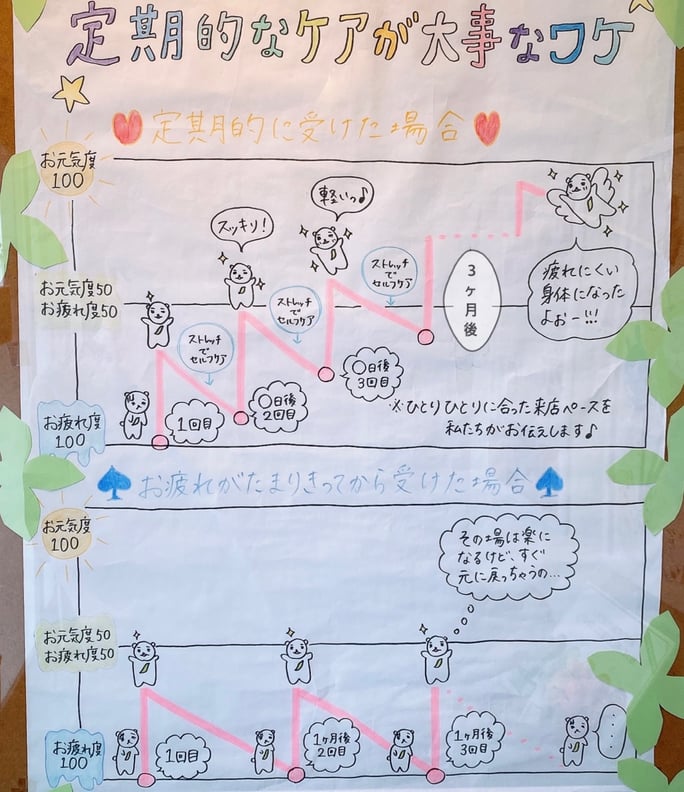 定期的なケアが大事なワケ
定期的に受けた場合
お元気度
100
スッキリ!
軽いっ♪
ストレッチ
で
セルフケア
ストレッチ
で
セルフケア
ストレッチ
で
セルフケア
3ヶ月後
疲れにくい
身体になった
よおー!!!
お元気度50
お疲れ度50
お疲れ度
100
1回目
〇日後
2回目
〇日後
3回目
※ひとりひとりに合った来店ペースを
私たちがお伝えします♪
お疲れがたまりきってから受けた場合
お元気度
100
その場は楽に
なるけど、すぐ
元に戻っちゃうの...
お元気度50
お疲れ度50
お疲れ度
100
1回目
1ヶ月後
2回目
1ヶ月後
3回目
...